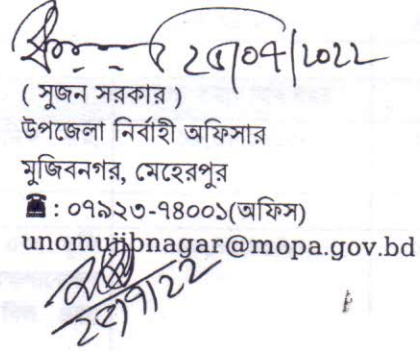 ২৫/০৭/২০২২
( সুজন সরকার )
উপজেলা নির্বাহী অফিসার
মুজিবনগর, মেহেরপুর
☎ : ০৭৯২৩-৭৪০০১(অফিস)
unomujibnagar@mopa.gov.bd